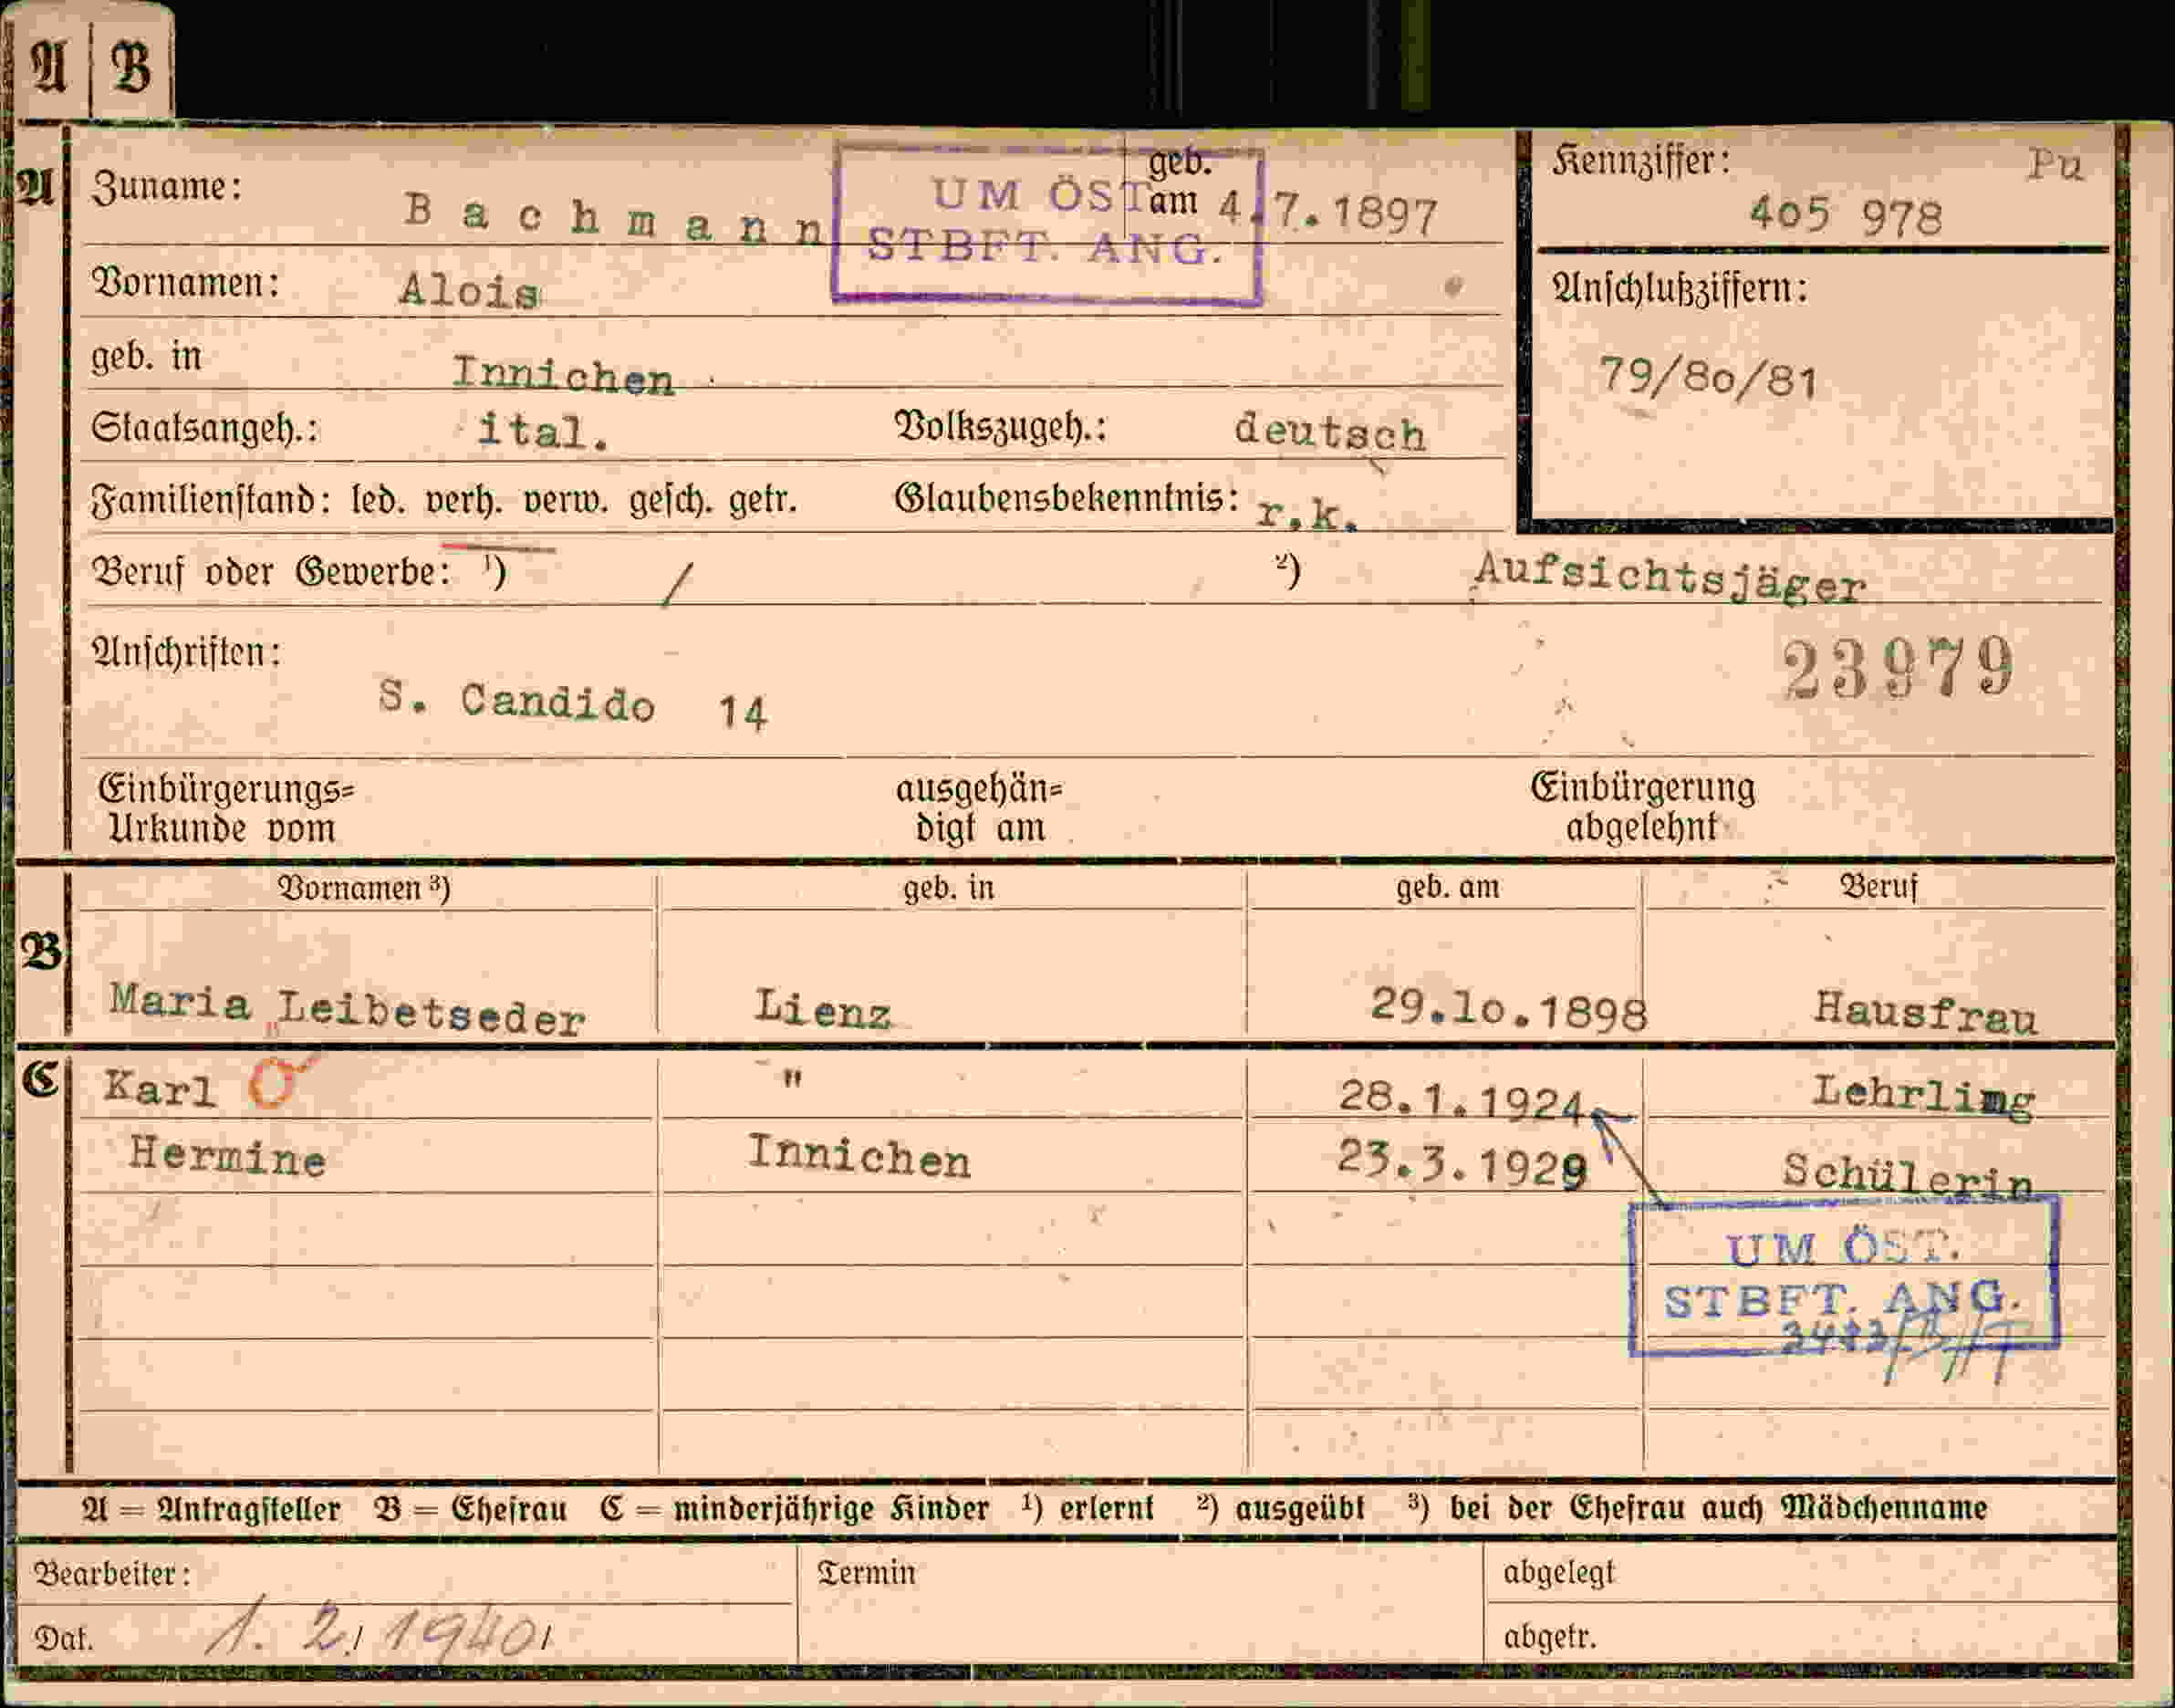 A B
A Zuname: Bachmann geb. am 4.7.1897
UM ÖST
STBFT. ANG.
Kennziffer: Pu
405 978
Vornamen: Alois
Anschlußziffern:
79/80/81
geb. in Innichen
Staatsangeh.: ital. Volkszugeh.: deutsch
Familienstand: led. verh. verw. gesch. getr. Glaubensbekenntnis: r.k.
Beruf oder Gewerbe: ¹) / ²) Aufsichtsjäger
Anschriften:
23979
S. Candido 14
Einbürgerungs= ausgehän= Einbürgerung
Urkunde vom digt am abgelehnt
Vornamen ³) geb. in geb. am Beruf
B
Maria Leibetseder Lienz 29.10.1898 Hausfrau
C Karl " 28.1.1924 Lehrling
Hermine Innichen 23.3.1929 Schülerin
UM ÖST.
STBFT. ANG.
A = Antragsteller B = Ehefrau C = minderjährige Kinder ¹) erlernt ²) ausgeübt ³) bei der Ehefrau auch Mädchenname
Bearbeiter: Termin abgelegt
Dat. 1. 2. 1940 abgetr.